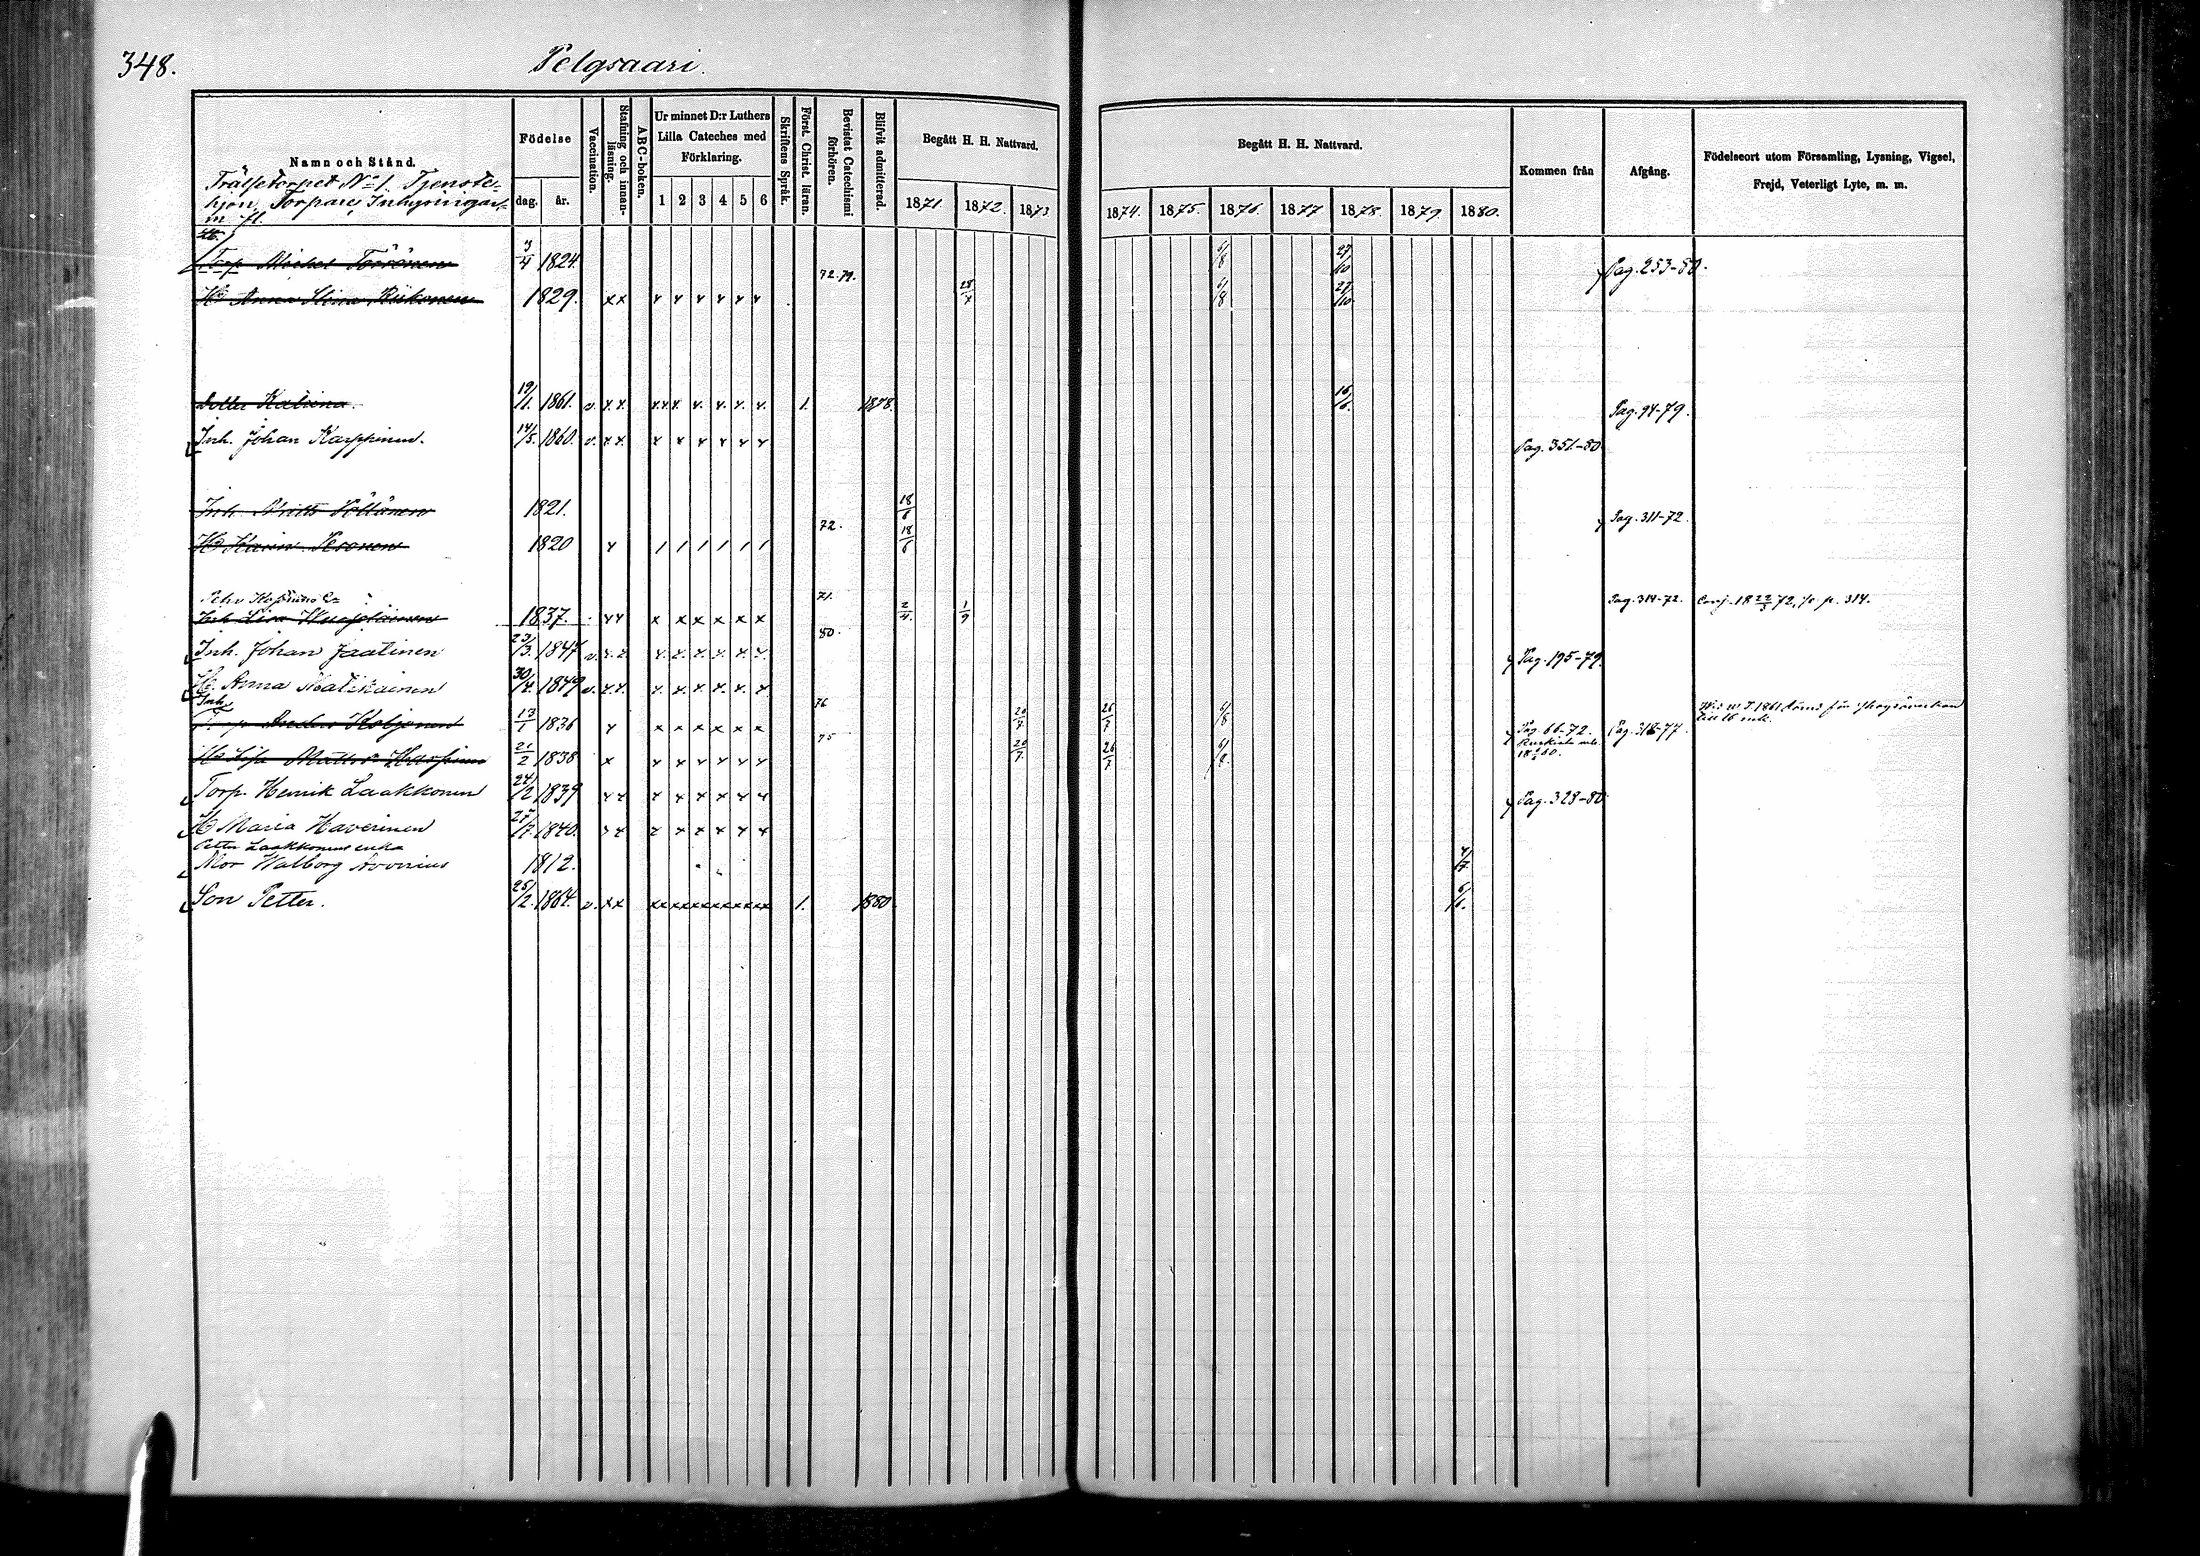 348.
Pelgsaari.
Namn och Stånd.
Frälsetorpet No 1. Tjenste-
hjon, Torpare, Inhysingar
m. fl.
Födelse
dag. år.
Vaccination.
Stafning och innan-
läsning.
ABC-boken.
Ur minnet D:r Luthers
Lilla Cateches med
Förklaring.
1 2 3 4 5 6
Skriftens Språk.
Först. Christ. läran.
Bevistat Catechismi
förhören.
Blifvit admitterad.
Begått H. H. Nattvard.
1871. 1872. 1873.
Begått H. H. Nattvard.
1874. 1875. 1876. 1877 1878. 1879. 1880.
Kommen från
Afgång.
Födelseort utom Församling, Lysning, Vigsel,
Frejd, Veterligt Lyte, m. m.
Torp. Michel Törrönen 3/4 1824. 6/8 27/10 Pag. 253-80.
72. 79.
Hu Anna Stina 1829. x x x x x x x x 28/7 6/8 27/10
Dotter Katrina. 19/1. 1861. v. x x. x x x. x. x. x. x. 1. 1878. 16/6. Pag. 94-79.
Inh. Johan Karppinen. 14/5. 1860. v. x x. x x x x x x Pag. 351-80
Inh. Matts 1821. 18/6 Pag. 311-72.
72.
Hu Karin 1820 x / / / / / / 18/6
71.
Inh. 1837. x x x x x x x x 2/4. 1/9 Pag. 314-72. Conj. 18 22/3 72, p. 314.
80.
Inh. Johan Jaatinen 23/3. 1847 v. x. x x. x. x. x. x. x. Pag. 195-79.
Hu. Anna Matikainen 30/4. 1849 v. x x. x. x. x. x. x. x
Inh. 76
Torp. Anders Koljonen 13/1 1836 x x x x x x x 20/7 26/7 6/8 Pag. 66-72. Pag. 318-77.
75
Hu Lisa Mattsdr 21/2 1838 x x x x x x x 20/7. 26/7 6/8
Torp. Henrik Laakkonen 24/2 1839 x x x x x x x x Pag. 328-80
Hu Maria Haverinen 27/7. 1840. x x x x x x x x
Petter Laakkonens enka
Mor Walborg 1812. 4/7.
Son Petter. 25/2. 1864. v. x x xx xx xx xx xx xx 1. 1880 6/6.